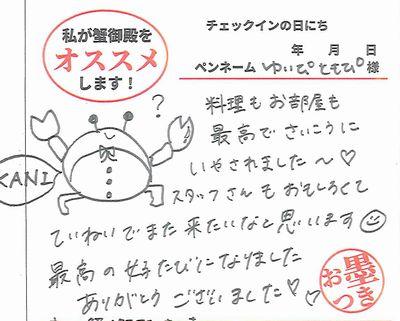 私が蟹御殿を
オススメ
します！
チェックインの日にち
年 月 日
ペンネーム ゆいぴ ともぴ 様
?
KANI
料理もお部屋も
最高でさいこうに
いやされました〜♡
スタッフさんもおもしろくて
ていねいでまた来たいなと思います
最高の女子たびになりました
ありがとうございました♡♡
お墨つき